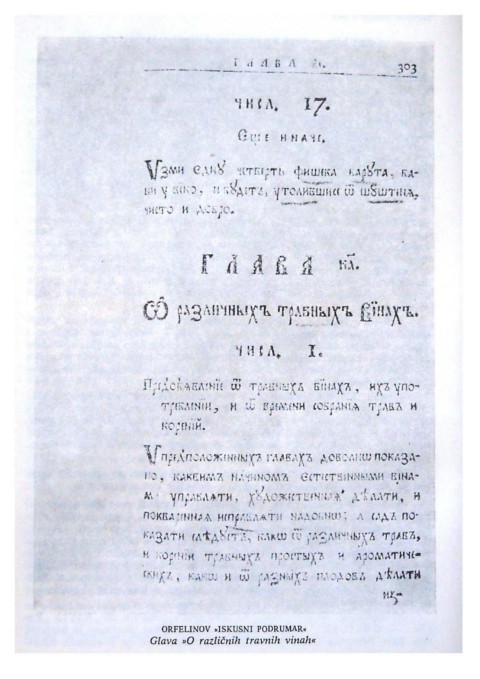 ГЛАВА 303
ЧИСЛ. 17.
Єще иначе.
Узми єдну четверть фишка карута, ба-
ци у вїно, и будетъ, утоливши ѿ шуштаня,
чисто и добро.
ГЛАВА ка.
Ѽ различныхъ травныхъ вїнахъ.
ЧИСЛ. I.
Предъявленїе ѿ травныхъ вїнахъ, ихъ упо-
требленїи, и ѿ времени собранїя травъ и
коренїй.
Упредположенныхъ главахъ доволнѡ показа-
но, каквимъ начиномъ єстественными вїна-
м управляти, художественная дѣлати, и
поквареная исправляти надобнѡ; а садъ по-
казати слѣдуетъ, какѡ ѿ различныхъ травъ,
и коренїи травныхъ простыхъ и ароматиче-
скихъ, какѡ и ѿ разныхъ плодовъ дѣлати
из-
ORFELINOV »ISKUSNI PODRUMAR«
Glava »O različnih travnih vinah«